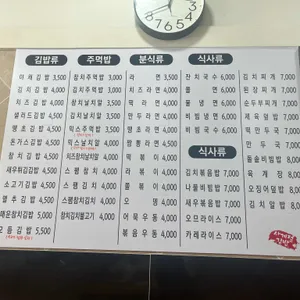 김밥류
야채김밥 3,500
김치김밥 4,000
치즈김밥 4,000
샐러드김밥 4,500
땡초김밥 4,500
돈가스김밥 4,500
참치김밥 4,500
새우튀김김밥 4,500
소고기김밥 4,500
매운참치김밥 5,000
모듬김밥 5,500
주먹밥
참치주먹밥 3,000
김치주먹밥 3,000
참치날치알 3,500
김치날치알 3,500
믹스주먹밥 3,500
믹스날치알 4,000
치즈참치날치알 4,000
스팸참치 4,000
스팸김치 4,000
스팸참치김치 4,000
참치김치불고기 4,000
분식류
라면 3,500
치즈라면 4,000
떡라면 4,000
만두라면 4,000
짬뽕라면 4,500
떡볶이 4,000
라볶이 5,000
쫄볶이 5,000
오뎅 4,000
어묵우동 4,000
볶음우동 4,000
식사류
잔치국수 6,000
쫄면 6,000
물냉면 6,000
비빔냉면 6,000
비빔국수 6,000
식사류
김치볶음밥 7,000
나물비빔밥 7,000
새우볶음밥 7,000
오므라이스 7,000
카레라이스 7,000
김치찌개 7,000
된장찌개 7,000
순두부찌개 7,000
제육덮밥 7,000
떡만두국 7,000
만두국 7,000
돌솥비빔밥 8,000
육개장 8,000
오징어덮밥 8,000
김치덮밥 8,000